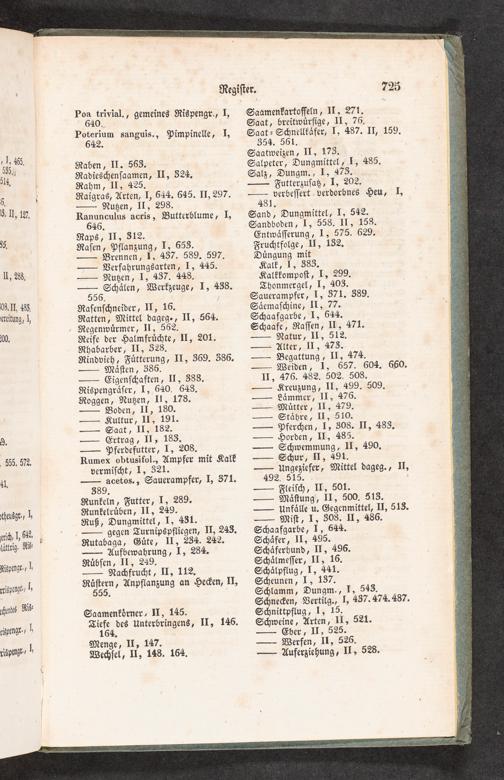 Register.
725
Poa trivial., gemeines Rispengr., I,
640.
Poterium sanguis., Pimpinelle, I,
642.
Raben, II, 563.
Radieschensaamen, II, 324.
Rahm, II, 425.
Raigras, Arten, I, 644. 645. II, 297.
—— Nutzen, II, 298.
Ranunculus acris, Butterblume, I,
646.
Raps, II, 312.
Rasen, Pflanzung, I, 653.
—— Brennen, I, 437. 589. 597.
—— Verfahrungsarten, I, 445.
—— Nutzen, I, 437. 448.
—— Schälen, Werkzeuge, I, 438.
556.
Rasenschneider, II, 16.
Ratten, Mittel dageg., II, 564.
Regenwürmer, II, 562.
Reife der Halmfrüchte, II, 201.
Rhabarber, II, 328.
Rindvieh, Fütterung, II, 369. 386.
—— Mästen, II, 386.
—— Eigenschaften, II, 388.
Rispengräser, I, 640. 648.
Roggen, Nutzen, II, 178.
—— Boden, II, 180.
—— Kultur, II, 191.
—— Saat, II, 182.
—— Ertrag, II, 183.
—— Pferdefutter, I, 208.
Rumex obtusifol., Ampfer mit Kalk
vermischt, I, 321.
—— acetos., Sauerampfer, I, 371.
389.
Runkeln, Futter, I, 289.
Runkelrüben, II, 249.
Ruß, Dungmittel, I, 431.
—— gegen Turnipspfliegen, II, 243.
Rutabaga, Güte, II, 234. 242.
—— Aufbewahrung, I, 284.
Rübsen, II, 249.
—— Nachfrucht, II, 112.
Rüstern, Anpflanzung an Hecken, II,
555.
Saamenkörner, II, 145.
Tiefe des Unterbringens, II, 146.
164.
Menge, II, 147.
Wechsel, II, 148. 164.
Saamenkartoffeln, II, 271.
Saat, breitwürfige, II, 76.
Saat-Schnellkäfer, I, 487. II, 159.
354. 561.
Saatweizen, II, 173.
Salpeter, Dungmittel, I, 485.
Salz, Dungm., I, 473.
—— Futterzusatz, I, 202.
—— verbessert verdorbnes Heu, I,
481.
Sand, Dungmittel, I, 542.
Sandboden, I, 558. II, 158.
Entwässerung, I, 575. 629.
Fruchtfolge, II, 132.
Düngung mit
Kalk, I, 383.
Kalkkompost, I, 299.
Thonmergel, I, 403.
Sauerampfer, I, 371. 389.
Säemaschine, II, 77.
Schaafgarbe, I, 644.
Schaafe, Rassen, II, 471.
—— Natur, II, 512.
—— Alter, II, 473.
—— Begattung, II, 474.
—— Weiden, I, 657. 604. 660.
II, 476. 482. 502. 508.
—— Kreuzung, II, 499. 509.
—— Lämmer, II, 476.
—— Mütter, II, 479.
—— Stähre, II, 510.
—— Pferchen, I, 308. II, 489.
—— Horden, II, 485.
—— Schwemmung, II, 490.
—— Schur, II, 491.
—— Ungeziefer, Mittel dageg., II,
492. 515.
—— Fleisch, II, 501.
—— Mästung, II, 500. 513.
—— Unfälle u. Gegenmittel, II, 513.
—— Mist, I, 308. II, 486.
Schaafgarbe, I, 644.
Schäfer, II, 495.
Schäferhund, II, 496.
Schälmesser, II, 16.
Schälpflug, I, 441.
Scheunen, I, 137.
Schlamm, Dungm., I, 543.
Schnecken, Vertilg., I, 437. 474. 487.
Schnittpflug, I, 15.
Schweine, Arten, II, 521.
—— Eber, II, 525.
—— Werfen, II, 526.
—— Auferziehung, II, 528.